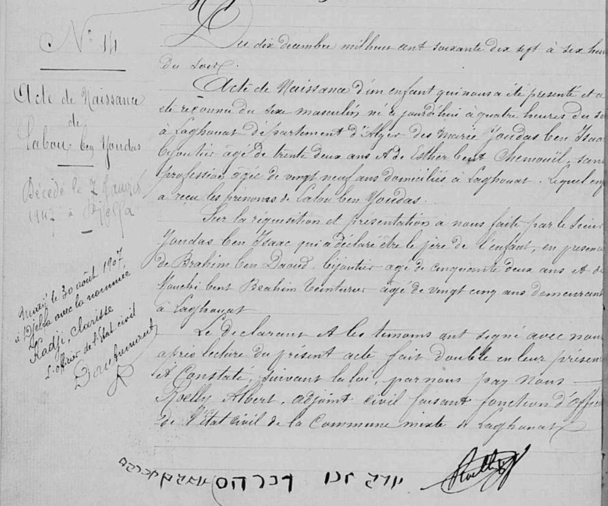 N° 14
Acte de Naissance
de
Salou ben Youdas
Décédé le 7
à Djelfa
Marié le 30 août 1907
à Djelfa avec la nommée
Kadji, Clarisse
L'officier de l'état civil
Du dix decembre mil huit cent soixante dix sept à six heu
du soir.
Acte de Naissance d'un enfant qui nous a été présenté et a
été reconnu du sexe masculin né à quatre heures du so
à Laghouat département d'Alger des mariés Youdas ben Isaac
bijoutier agé de trente deux ans et de Esther bent Chemouil, sans
profession agée de vingt neuf ans domiciliés à Laghouat. Lequel en
a reçu les prénoms de Salou ben Youdas.
Sur la réquisition et présentation à nous faite par le Sieur
Youdas ben Isaac qui a déclaré être le père de l'enfant, en présence
de Brahim ben Daoud, bijoutier agé de cinquante deux ans et de
bent Brahim teinturier agé de vingt cinq ans demeurant
à Laghouat
Le Déclarant et les témoins ont signé avec nous
après lecture du présent acte fait double en leur présen
et Constaté, suivant la loi, par nous
Albert, adjoint civil faisant fonction d'offici
de l'état civil de la Commune mixte de Laghouat